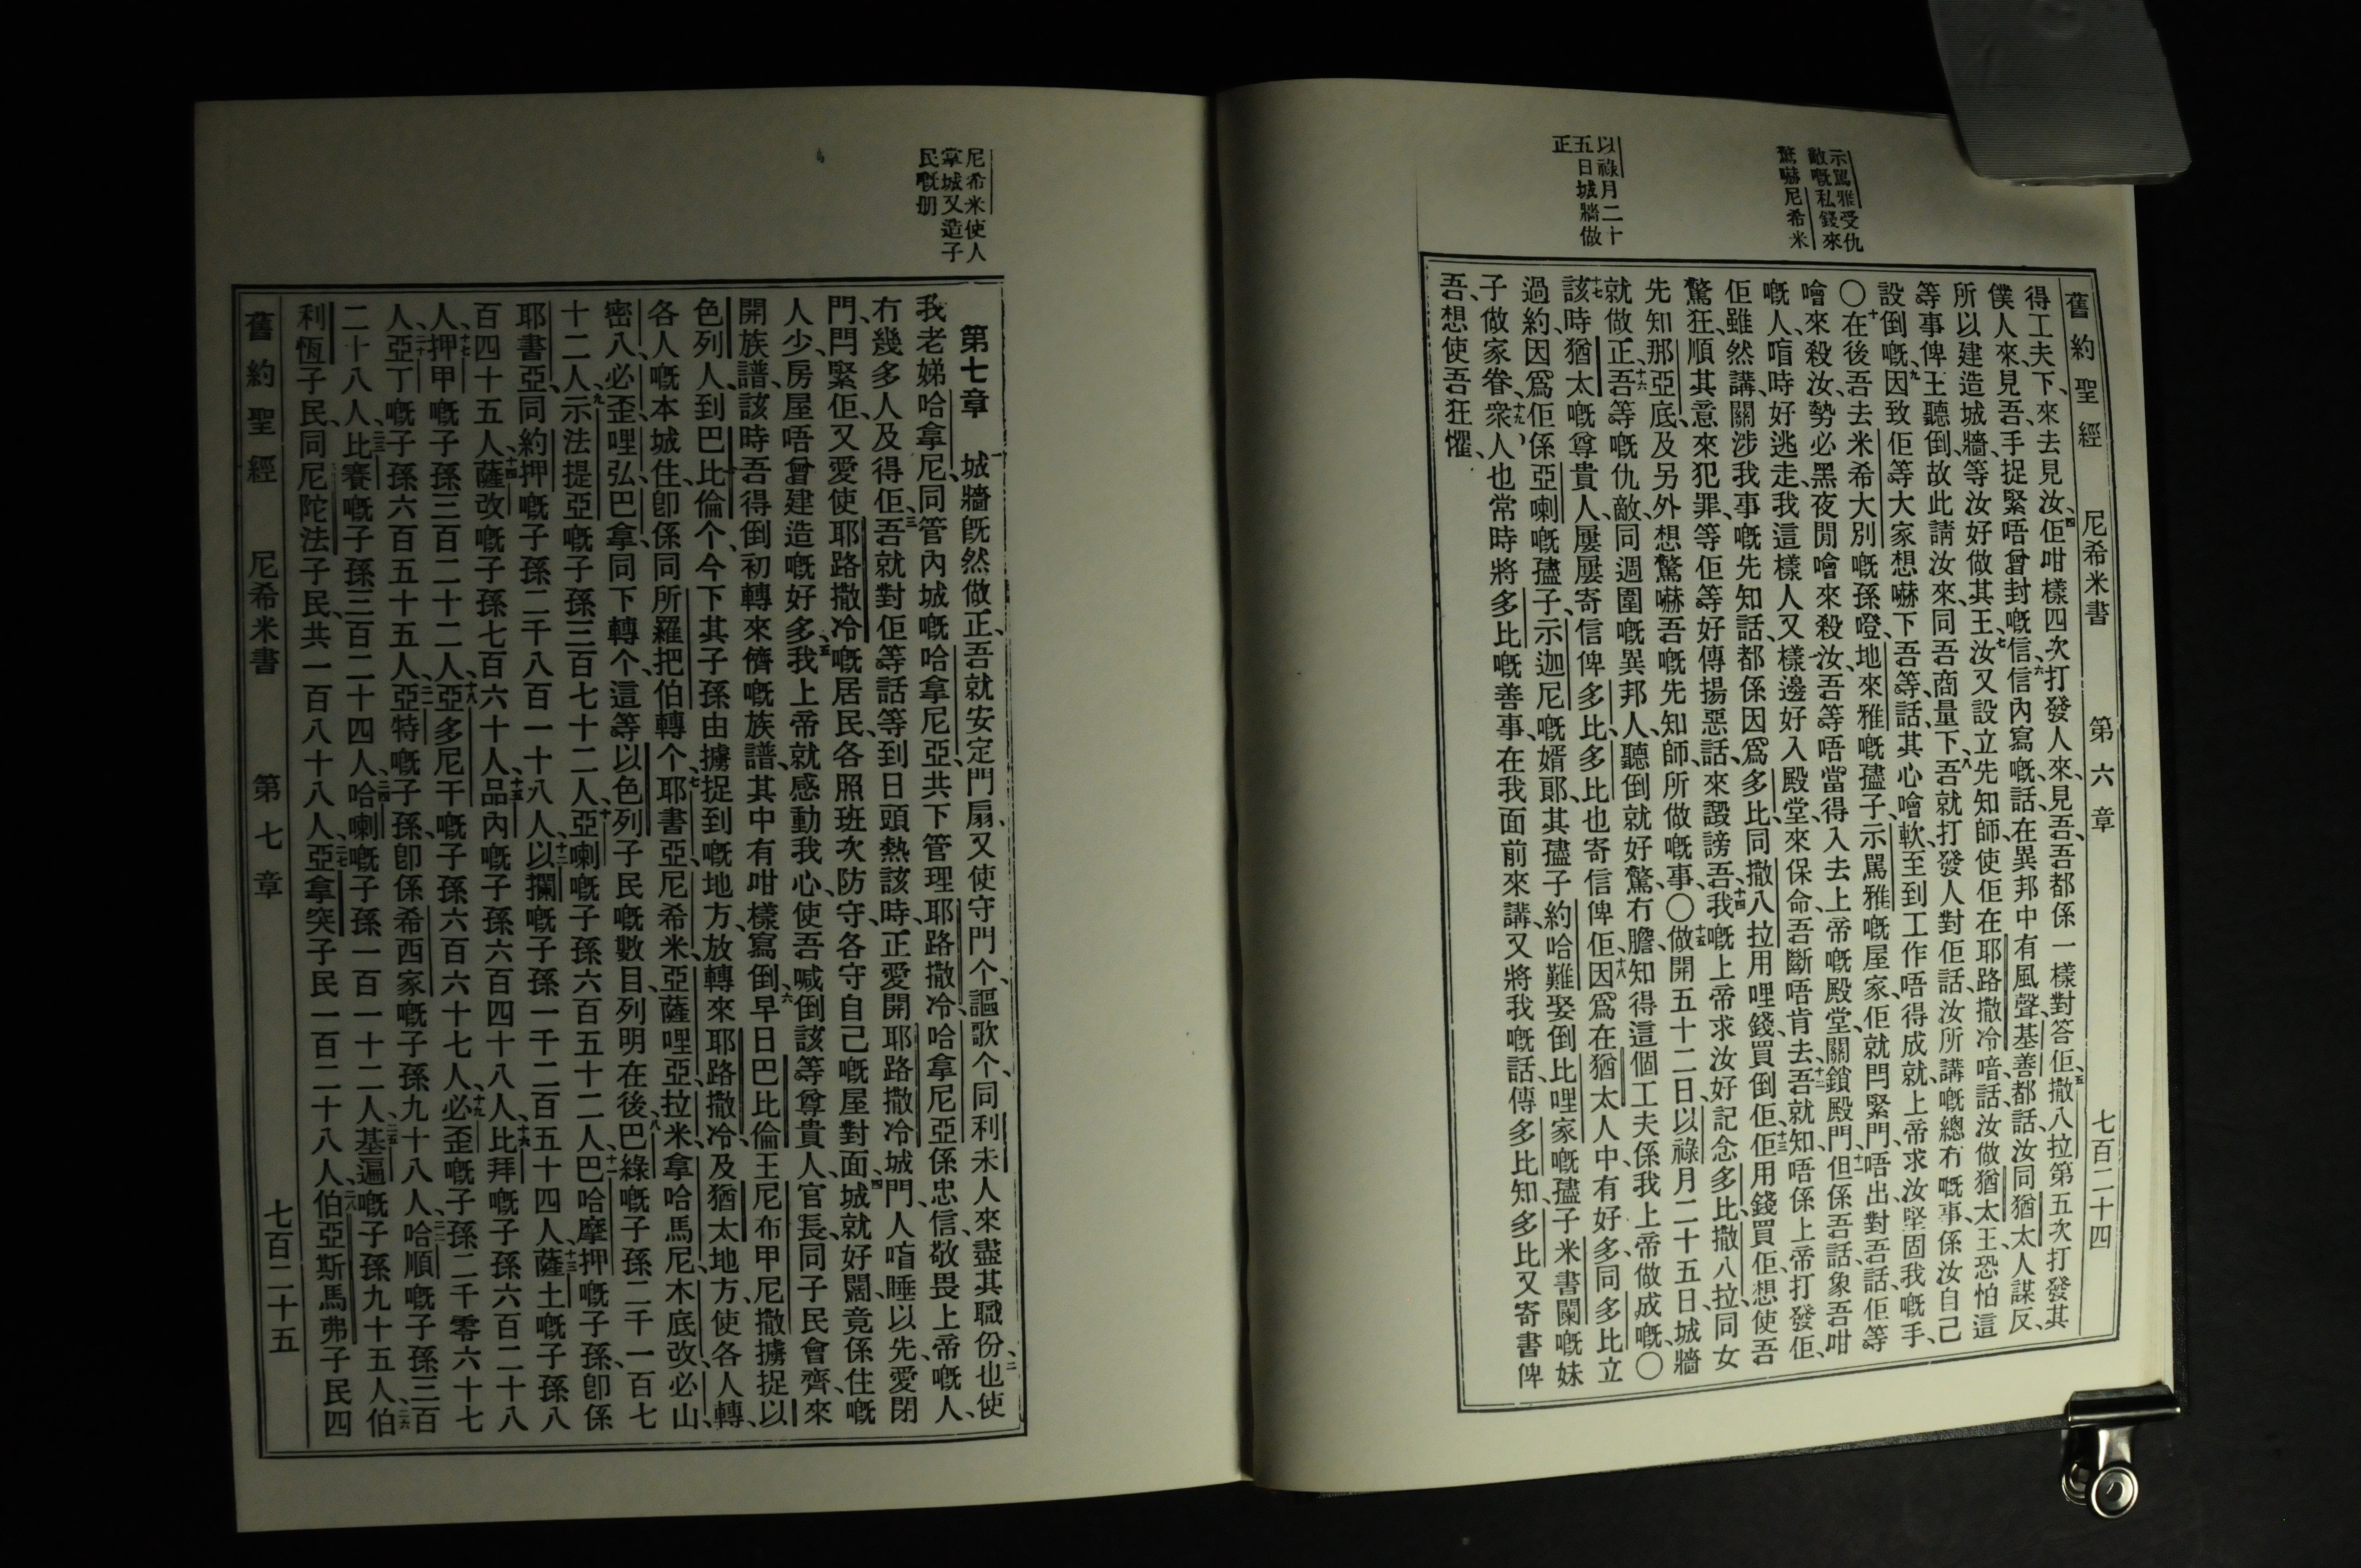 舊約聖經 尼希米書 第六章 七百二十四
示罵雅受仇
敵嘅私錢來
驚嚇尼希米
以祿月二十
五日城牆做
正
得工夫下、來去見汝、四佢咁樣四次打發人來、見吾、吾都係一樣對答佢、五撒八拉第五次打發其
僕人來、見吾、手捉緊唔曾封嘅信、六信內寫嘅、話、在異邦中有風聲、基善都話、汝同猶太人謀反、
所以建造城牆、等汝好做其王、七汝又設立先知師、使佢在耶路撒冷喑話、汝做猶太王、恐怕這
等事俾王聽倒、故此請汝來、同吾商量下、八吾就打發人對佢話、汝所講嘅總冇嘅事、係汝自己
設倒嘅、九因致佢等大家想嚇下吾等、話、其心噲軟、至到工作唔得成就、上帝求汝堅固我嘅手、
〇十在後吾去米希大別嘅孫、嘅孻子示罵雅嘅屋家、佢就閂緊門、唔出、對吾話、佢等
噲來殺汝、勢必黑夜間噲來殺汝、吾等唔當得入去上帝嘅殿堂、關鎖殿門、十一但係吾話、象吾咁
嘅人、啱時好逃走、我這樣人又樣邊好入殿堂、來保命、吾斷唔肯去、十二吾就知唔係上帝打發佢、
佢雖然講、關涉我事嘅先知話、都係因爲多比、同撒八拉用哩錢、買倒佢、十三佢用錢買佢、想使吾
驚狂、順其意來犯罪、等佢等好傳揚惡話、來譭謗吾、十四我嘅上帝求汝好記念多比、撒八拉、同女
先知那亞底、及另外想驚嚇吾嘅先知師、所做嘅事、〇十五做開五十二日、以祿月二十五日、城牆
就做正、十六吾等嘅仇敵、同週圍嘅異邦人、聽倒就好驚、冇膽、知得這個工夫、係我上帝做成嘅、〇
十七該時猶太嘅尊貴人、屢屢寄信俾多比、多比也寄信俾佢、十八因爲在猶太人中、有好多同多比立
過約、因爲佢係亞喇嘅孻子、示迦尼嘅婿郎、其孻子約哈難娶倒比哩家嘅孻子米書闌嘅妹
子做家眷、十九衆人也常時將多比嘅善事、在我面前來講、又將我嘅話、傳多比知、多比又寄書俾
吾、想使吾狂懼、
尼希米使人
掌城又造子
民嘅册
第七章 一城牆旣然做正、吾就安定門扇、又使守門个、謳歌个、同利未人來、盡其職份、二也使
我老娣哈拿尼、同管內城嘅哈拿尼亞、共下管理耶路撒冷、哈拿尼亞係忠信、敬畏上帝嘅人、
冇幾多人及得佢、三吾就對佢等話、等到日頭熱該時、正愛開耶路撒冷城門、人啱睡以先、愛閉
門、閂緊佢、又愛使耶路撒冷嘅居民、各照班次防守、各守自己嘅屋對面、四城就好闊、竟係住嘅
人少、房屋唔曾建造嘅好多、五我上帝就感動我心、使吾喊倒該等尊貴人、官長、同子民會齊、來
開族譜、該時吾得倒初轉來儕嘅族譜、其中有咁樣寫倒、六早日巴比倫王尼布甲尼撒擄捉以
色列人、到巴比倫个、今下其子孫由擄捉到嘅地方、放轉來耶路撒冷、及猶太地方、使各人轉、
各人嘅本城住、卽係同所羅把伯轉个、七耶書亞、尼希米、亞薩哩亞、拉米、拿哈馬尼、木底改、必山、
密八、必歪哩、弘巴拿、同下轉个、這等以色列子民嘅數目、列明在後、八巴綠嘅子孫二千一百七
十二人、九示法提亞嘅子孫三百七十二人、十亞喇嘅子孫六百五十二人、十一巴哈摩押嘅子孫、卽係
耶書亞、同約押嘅子孫二千八百一十八人、十二以攔嘅子孫一千二百五十四人、十三薩土嘅子孫八
百四十五人、十四薩改嘅子孫七百六十人、十五品內嘅子孫六百四十八人、十六比拜嘅子孫六百二十八
人、十七押甲嘅子孫三百二十二人、十八亞多尼干嘅子孫六百六十七人、十九必歪嘅子孫二千零六十七
人、二十亞丁嘅子孫六百五十五人、二一亞特嘅子孫、卽係希西家嘅子孫九十八人、二二哈順嘅子孫三百
二十八人、二三比賽嘅子孫三百二十四人、二四哈喇嘅子孫一百一十二人、二五基遍嘅子孫九十五人、二六伯
利恆子民、同尼陀法子民、共一百八十八人、二七亞拿突子民一百二十八人、二八伯亞斯馬弗子民四
舊約聖經 尼希米書 第七章 七百二十五